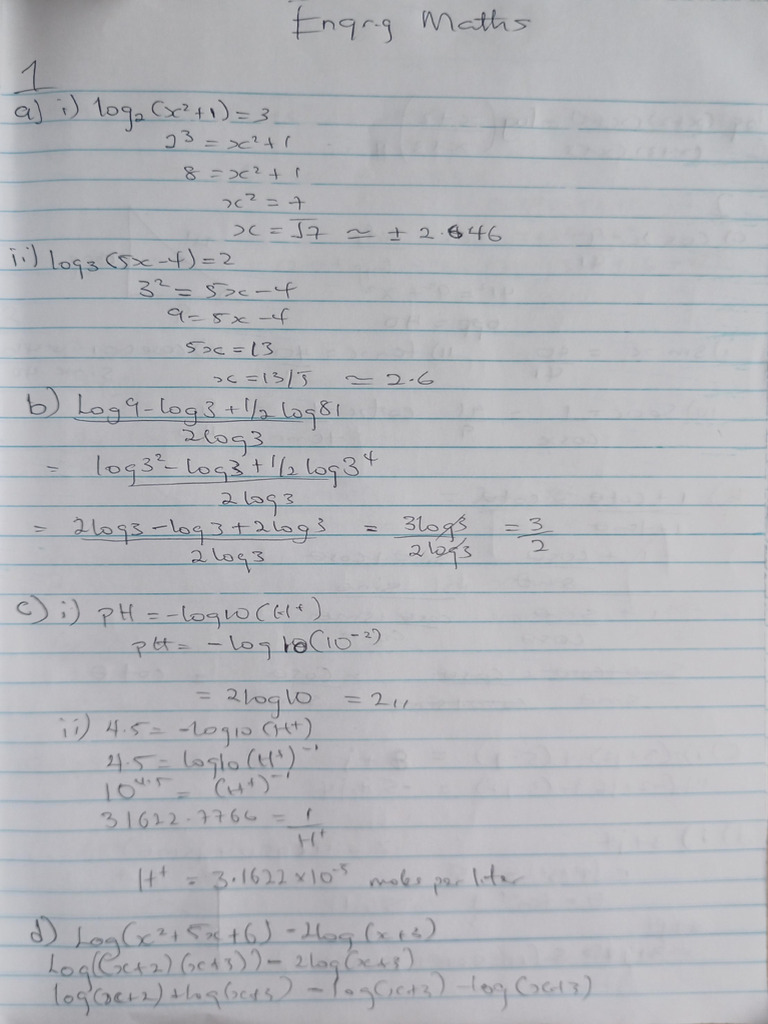 Engrg Maths
1
a) i) log₂(x²+1) = 3
2³ = x²+1
8 = x²+1
x² = 7
x = √7 ≃ ± 2.646
ii) log₃(5x-4) = 2
3² = 5x-4
9 = 5x-4
5x = 13
x = 13/5 ≃ 2.6
b) Log9 - log3 + 1/2 log81
2log3
= log3² - log3 + 1/2 log3⁴
2log3
= 2log3 - log3 + 2log3 = 3log3 = 3
2log3 2log3 2
c) i) pH = -log10(H⁺)
pH = -log10(10⁻²)
= 2log10 = 2,,
ii) 4.5 = -log10(H⁺)
4.5 = log10(H⁺)⁻¹
10⁴·⁵ = (H⁺)⁻¹
31622.7766 = 1
H⁺
H⁺ = 3.1622×10⁻⁵ moles per liter
d) Log(x²+5x+6) - 2log(x+3)
Log((x+2)(x+3)) - 2log(x+3)
log(x+2)+log(x+3) - log(x+3) - log(x+3)